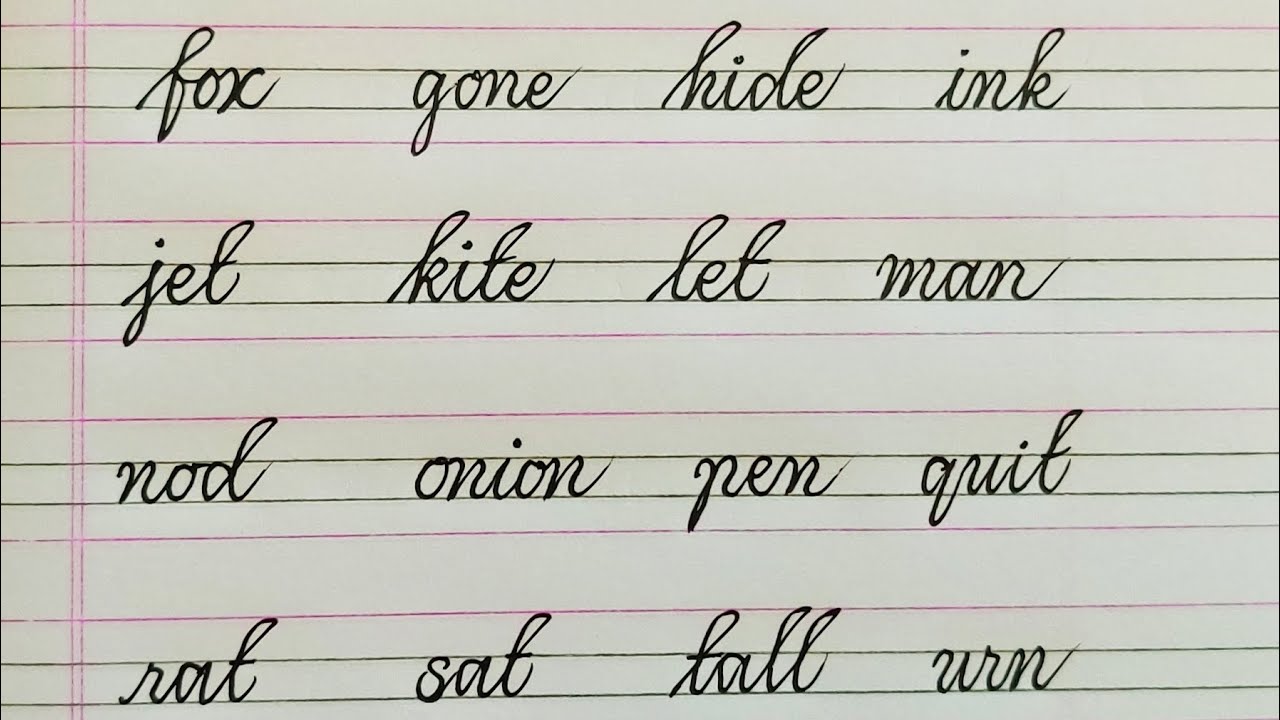 fox gone hide ink
jet kite let man
nod onion pen quit
rat sat tall urn